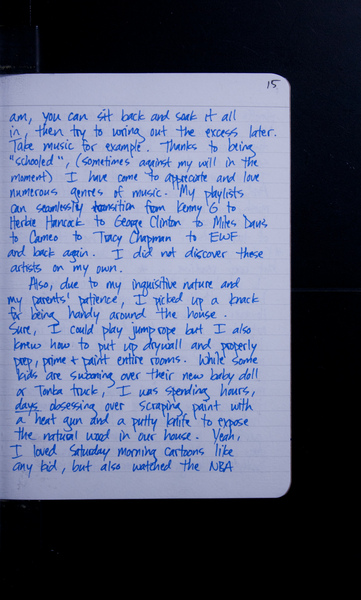 15
am, you can sit back and soak it all
in, then try to wring out the excess later.
Take music for example. Thanks to being
"schooled", (sometimes against my will in the
moment) I have come to appreciate and love
numerous genres of music. My playlists
can seamlessly transition from Kenny G to
Herbie Hancock to George Clinton to Miles Davis
to Cameo to Tracy Chapman to EWF
and back again. I did not discover these
artists on my own.
Also, due to my inquisitive nature and
my parents' patience, I picked up a knack
for being handy around the house.
Sure, I could play jump rope but I also
knew how to put up drywall and properly
prep, prime + paint entire rooms. While some
kids are swooning over their new baby doll
or Tonka truck, I was spending hours,
days obsessing over scraping paint with
a heat gun and a putty knife to expose
the natural wood in our house. Yeah,
I loved Saturday morning cartoons like
any kid, but also watched the NBA